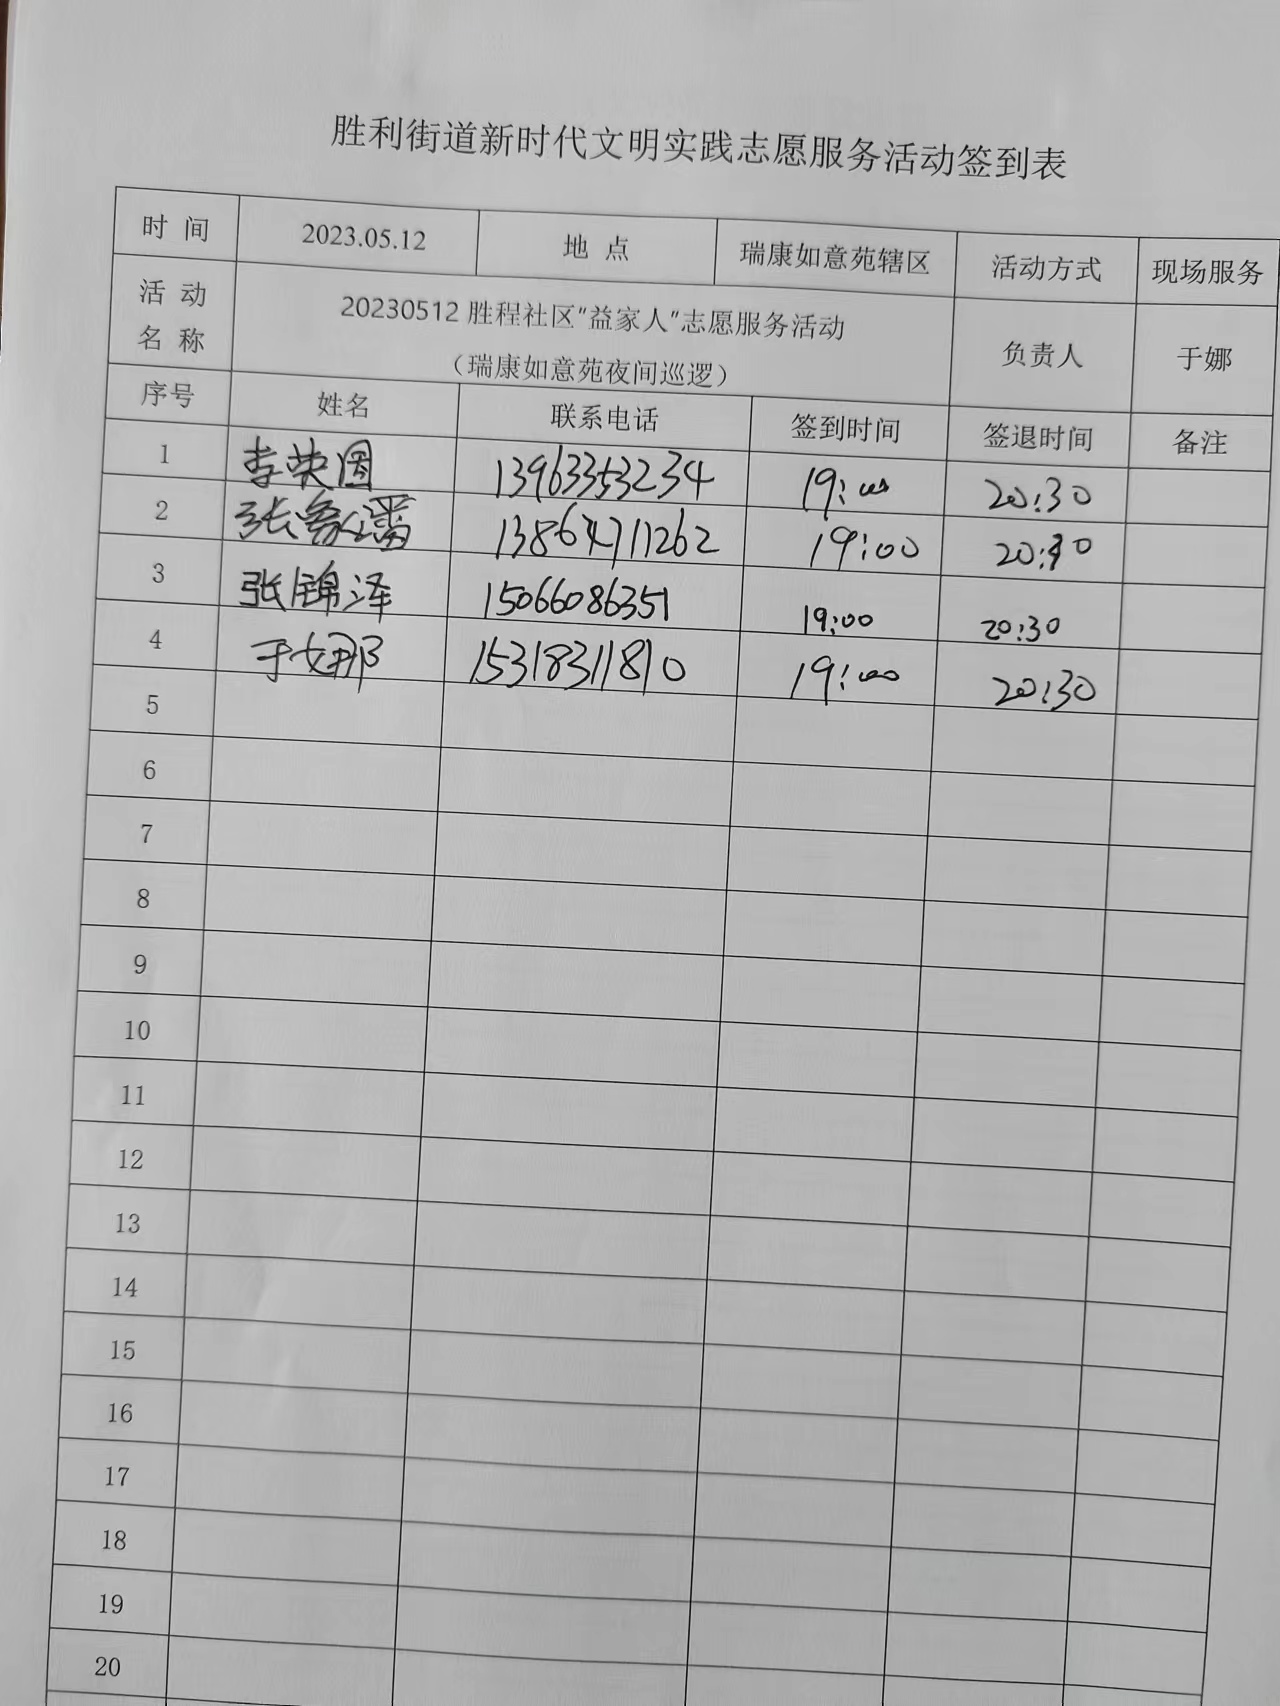 胜利街道新时代文明实践志愿服务活动签到表
时 间 2023.05.12 地 点 瑞康如意苑辖区 活动方式 现场服务
活 动 名 称 20230512 胜程社区“益家人”志愿服务活动 负责人 于娜
（瑞康如意苑夜间巡逻）
序号 姓名 联系电话 签到时间 签退时间 备注
1 李荣国 13963353234 19:00 20:30
2 张 13864711262 19:00 20:30
3 张锦泽 15066086351 19:00 20:30
4 于娜 15318311810 19:00 20:30
5
6
7
8
9
10
11
12
13
14
15
16
17
18
19
20